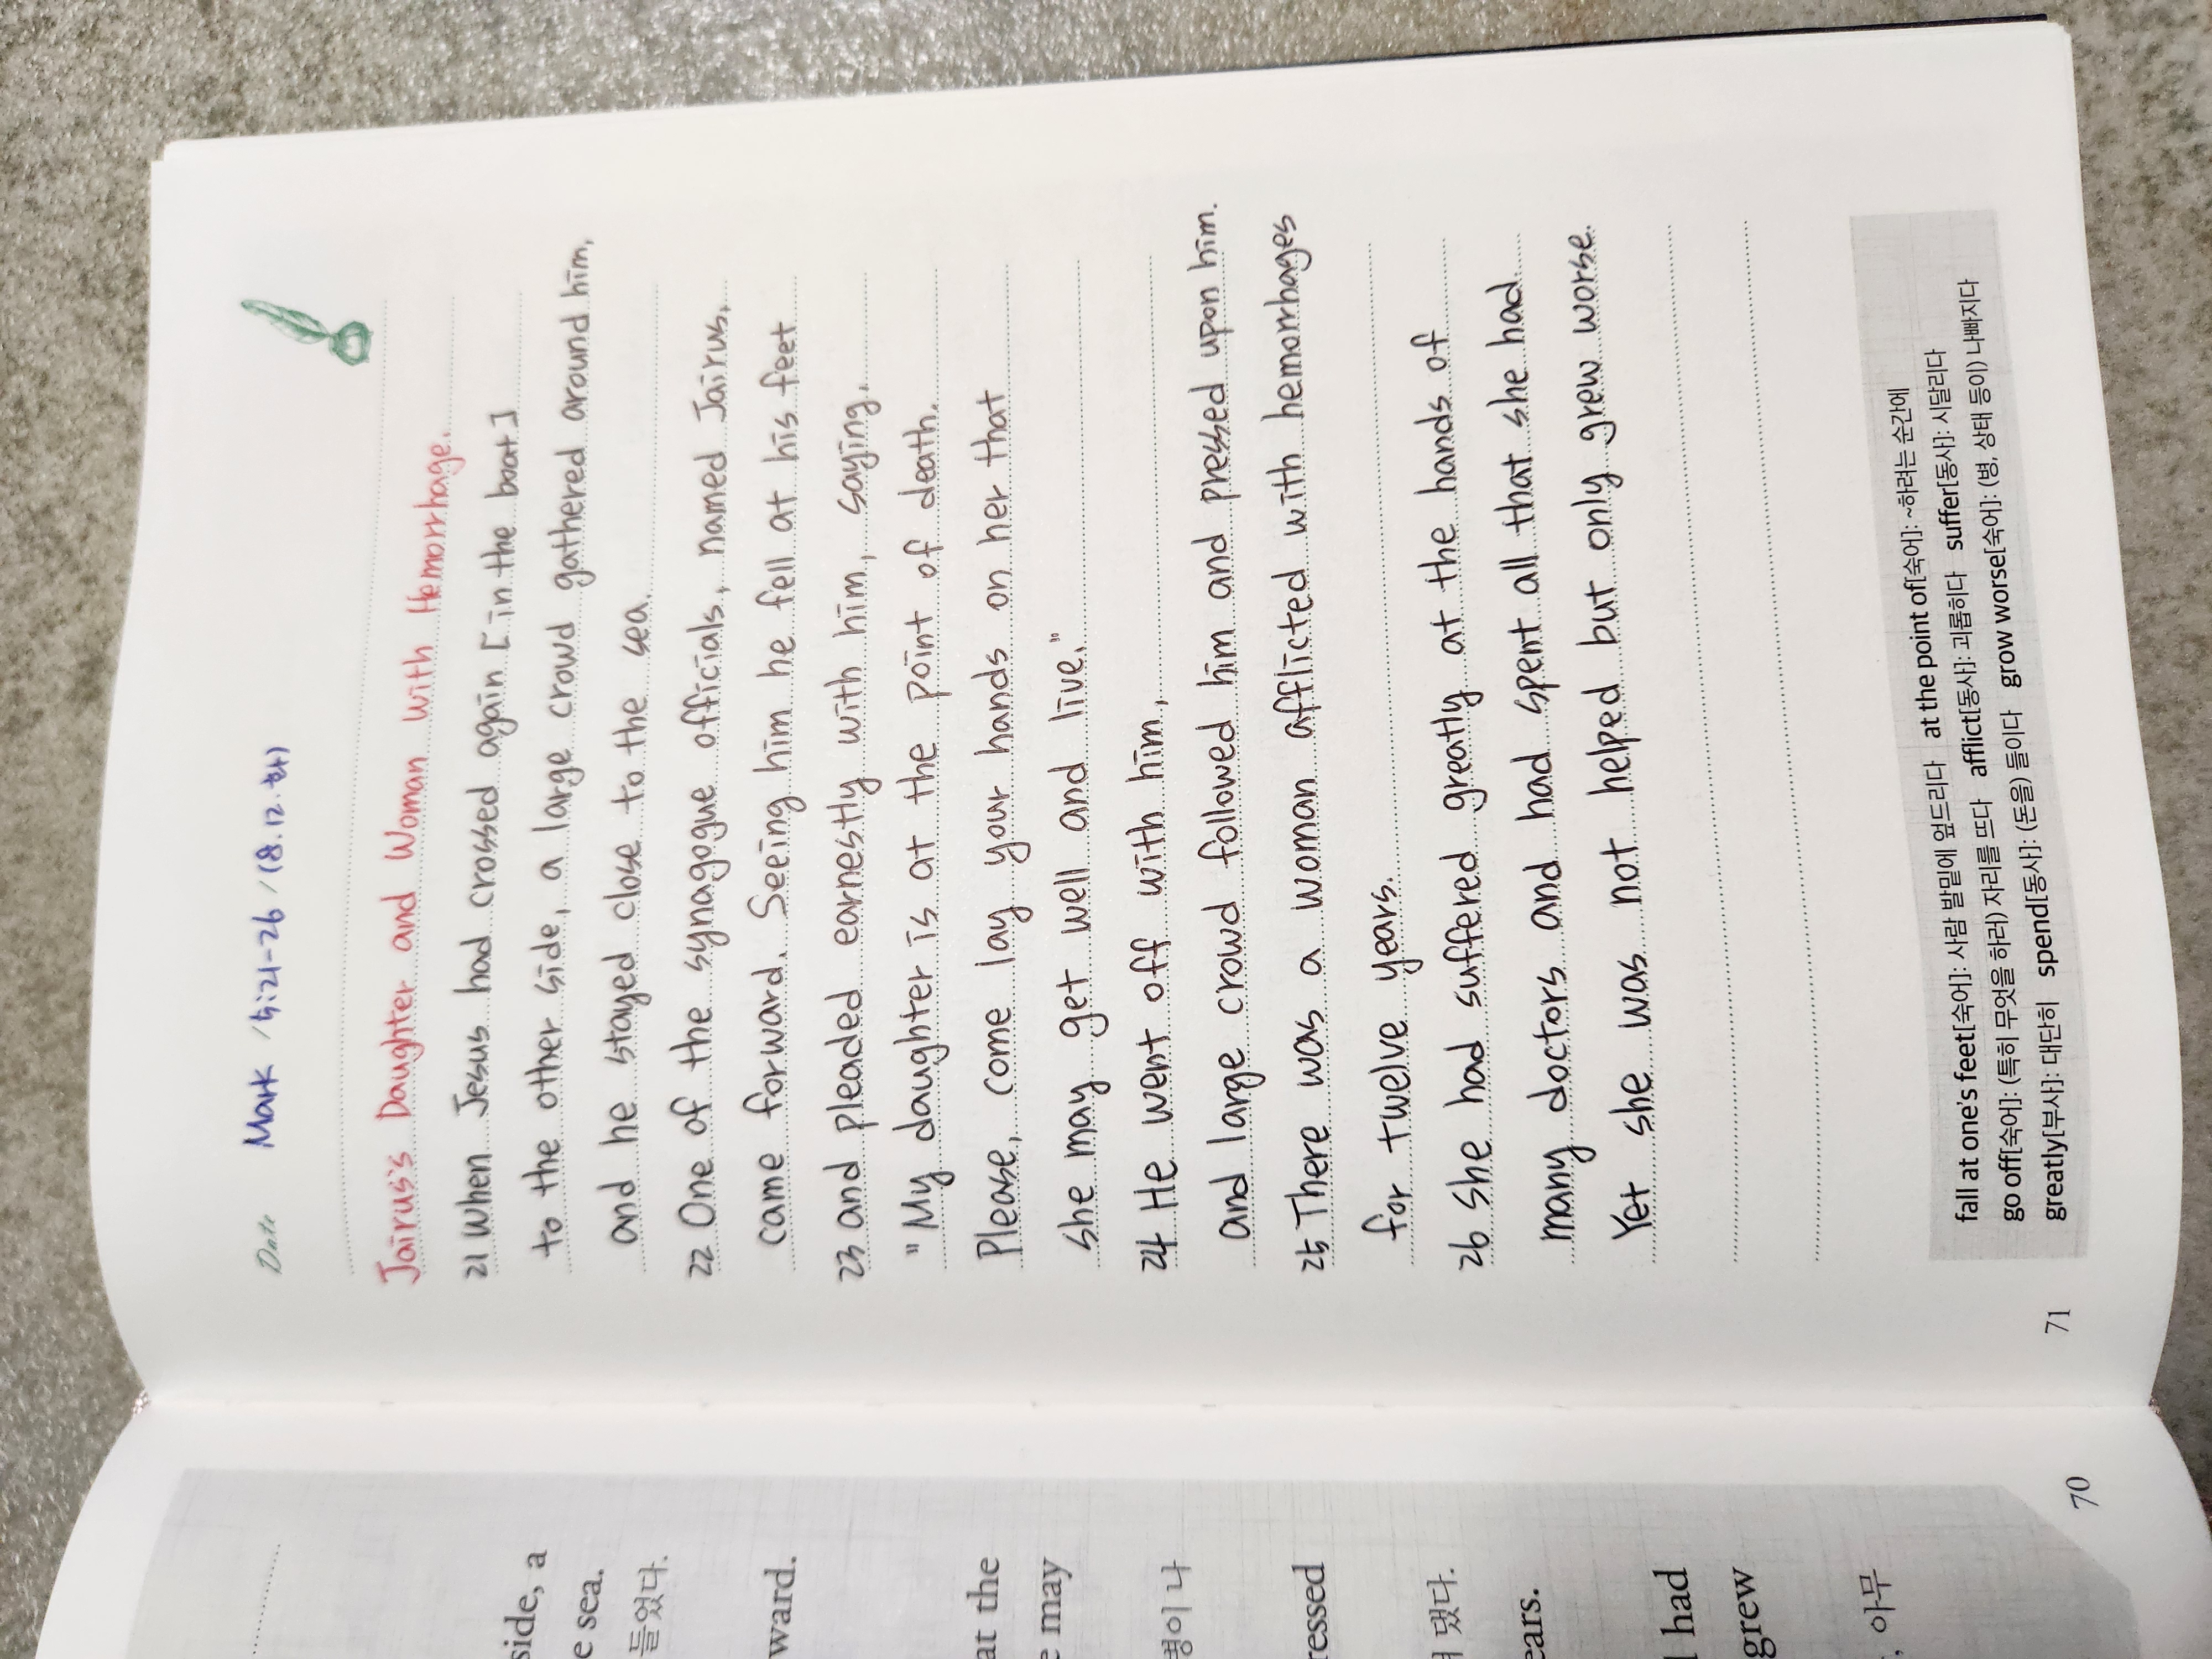 Date Mark /5:21-26 / (8.12.화)
Jairus's Daughter and Woman with Hemorrhage.
21 When Jesus had crossed again [in the boat]
to the other side, a large crowd gathered around him,
and he stayed close to the sea.
22 One of the synagogue officials, named Jairus,
came forward. Seeing him he fell at his feet
23 and pleaded earnestly with him, saying,
"My daughter is at the point of death.
Please, come lay your hands on her that
she may get well and live."
24 He went off with him,
and large crowd followed him and pressed upon him.
25 There was a woman afflicted with hemorrhages
for twelve years.
26 She had suffered greatly at the hands of
many doctors and had spent all that she had.
Yet she was not helped but only grew worse.
fall at one's feet[숙어]: 사람 발밑에 엎드리다 at the point of[숙어]: ~하려는 순간에
go off[숙어]: (특히 무엇을 하러) 자리를 뜨다 afflict[동사]: 괴롭히다 suffer[동사]: 시달리다
greatly[부사]: 대단히 spend[동사]: (돈을) 들이다 grow worse[숙어]: (병, 상태 등이) 나빠지다
71
side, a
e sea.
들었다.
ward.
at the
e may
병이 나
ressed
댔다.
ears.
had
grew
, 아무
70